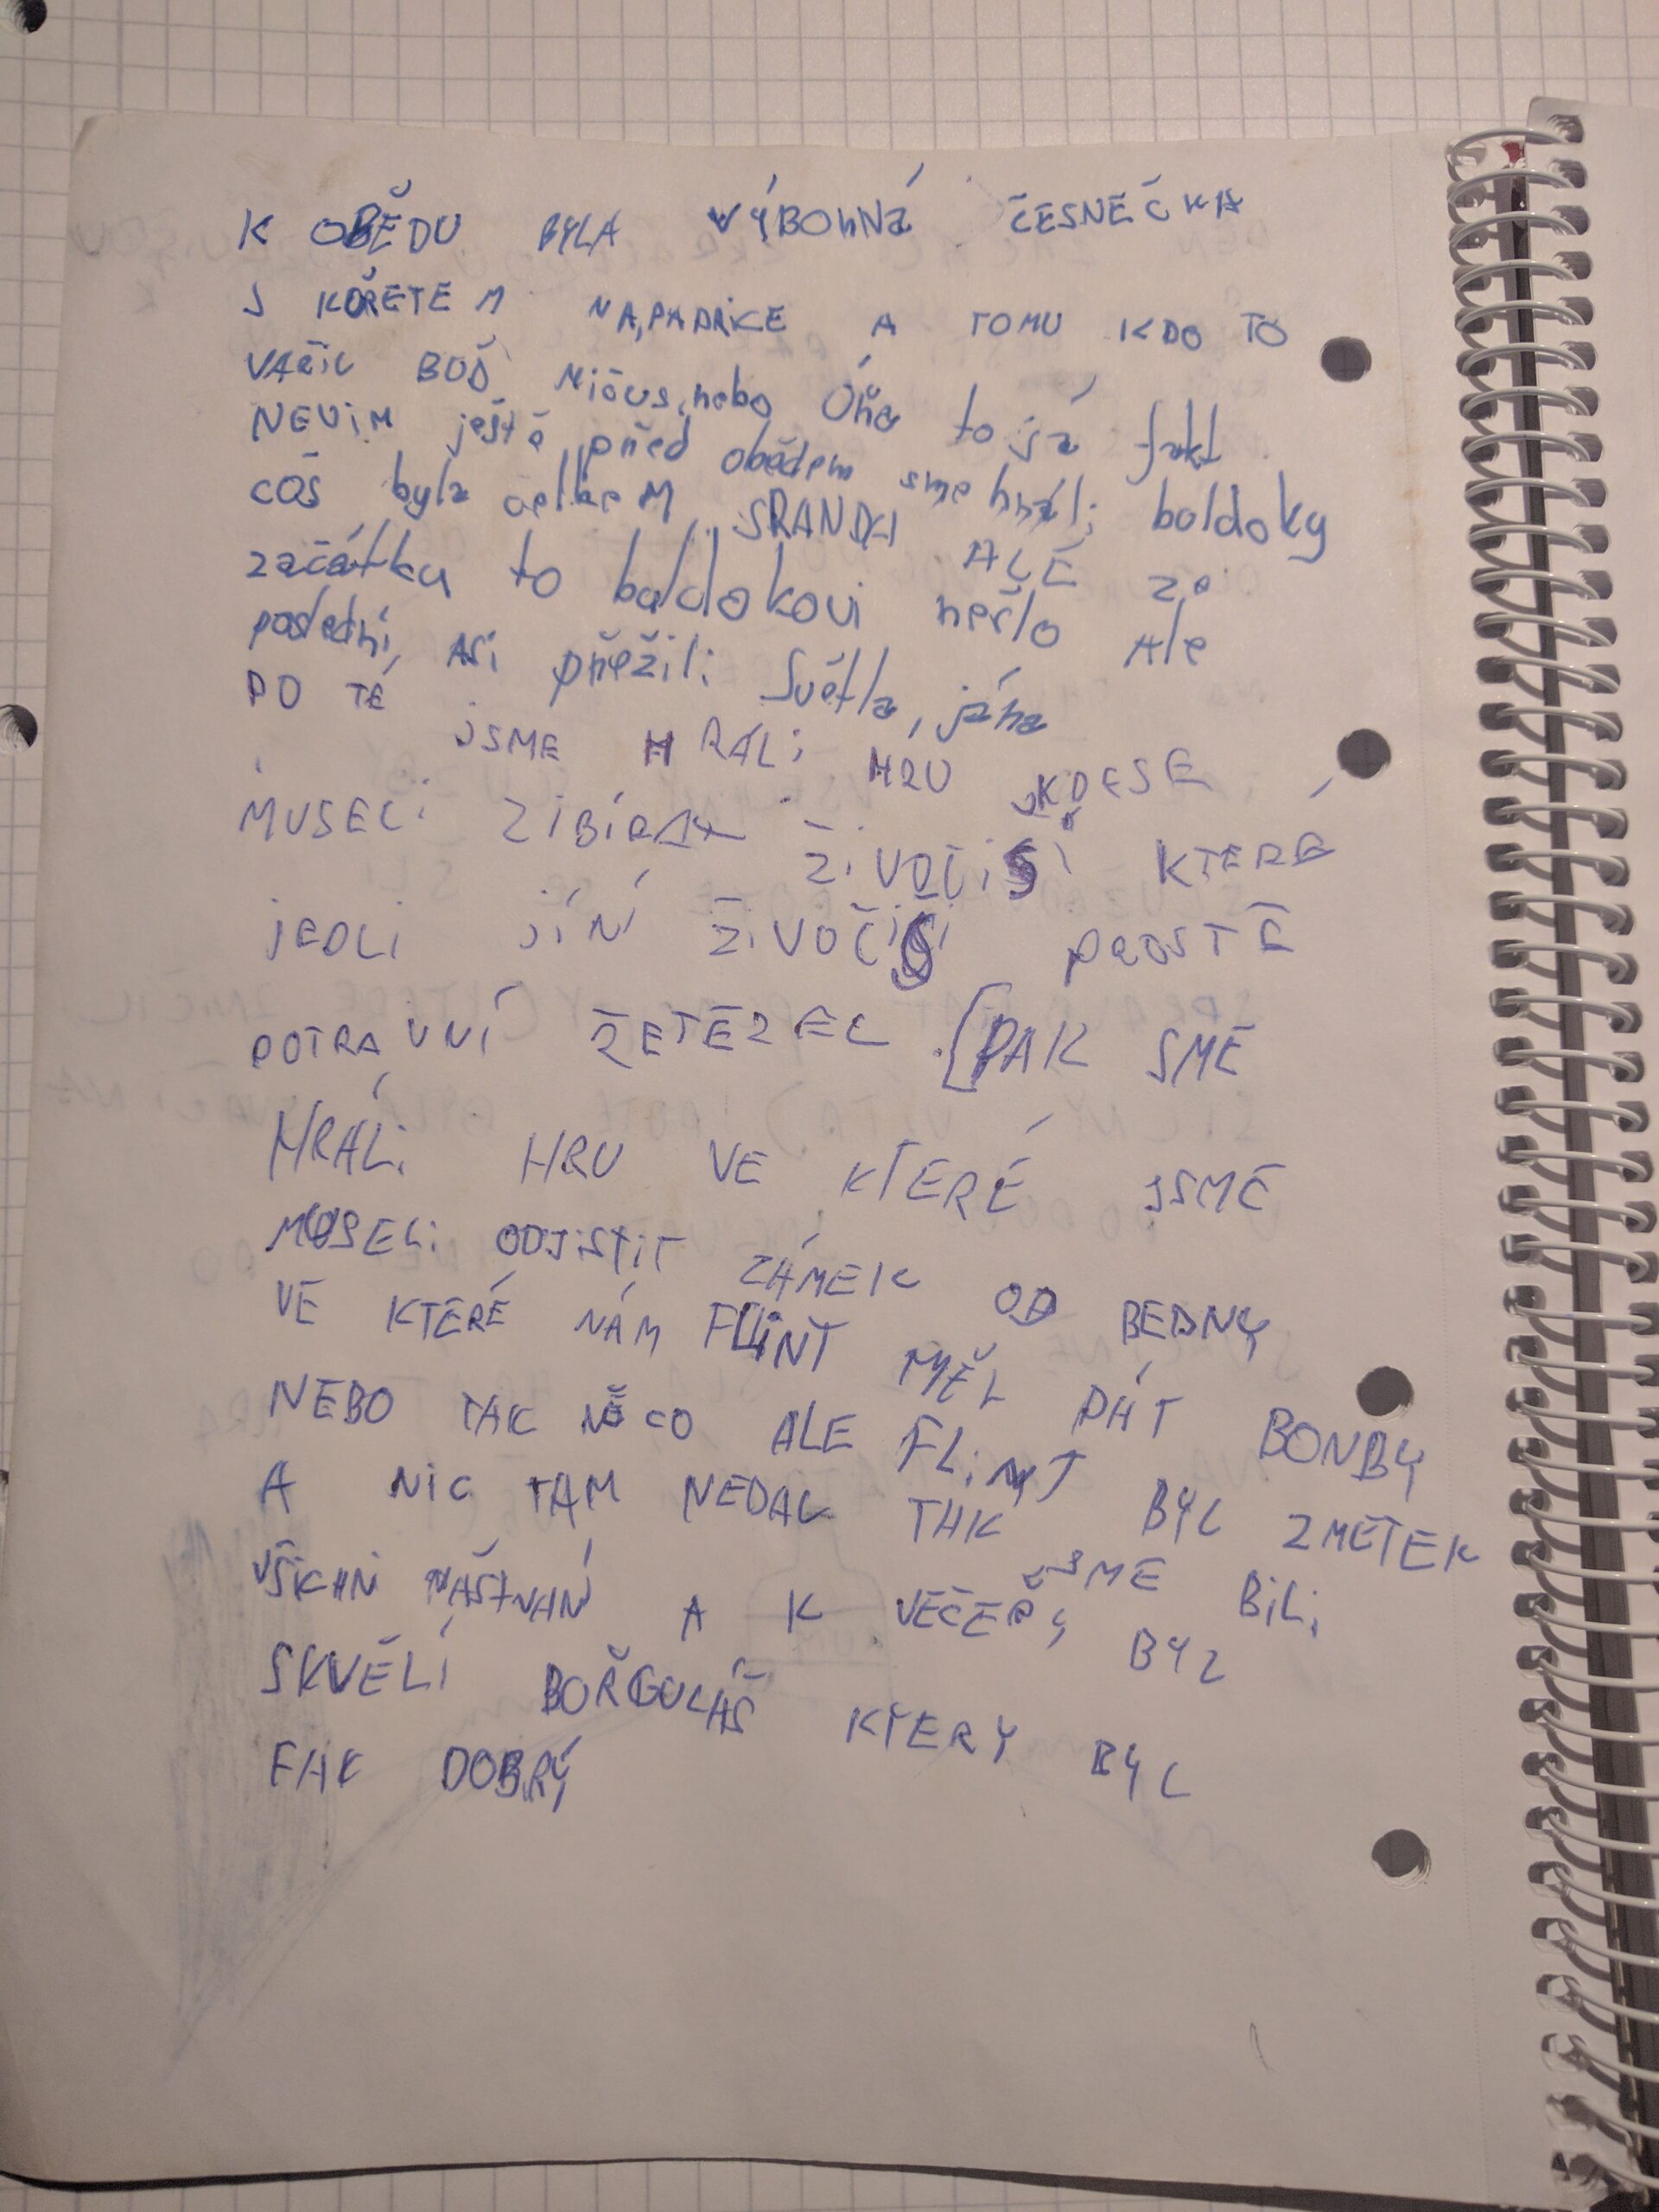 K OBĚDU BYLA VÝBOHNÁ ČESNEČKA
S KŮŘETEM NA PAPRICE A TOMU KDO TO
VAŘIL BOĎ Mičus nebo Óňa to já fakt
NEVÍM ještě před obědem sme hráli boldoky
COŠ byla celkem SRANDA ALE ze
začátku to boldokovi nešlo Ale
poslední, ASi přežili Světla, jáha
PO TÉ JSME HRÁLi HRU KDE SE
MUSELi ZiBÍRAT ŽiVOČiŠi KTERÉ
JEDLi JÍNÍ ŽiVOČiŠi PROSTĚ
POTRAVNÍ ŽETĚZEC. PAK SME
HRÁLi HRU VE KTERÉ JSME
MUSELi ODJiSTiT ZÁMEK OD BEDNY
VE KTERÉ NÁM FLiNT MYĚL DÁT BONBY
NEBO TAK NĚCO ALE FLiNT BYL ZMETEK
A NiC TAM NEDAL TAK SME BiLi
VŠiCHNi NAŠTVANÍ A K VEČEŘY BYL
SKVĚLÍ BOŘGULÁŠ KTERY BYL
FAK DOBRÝ